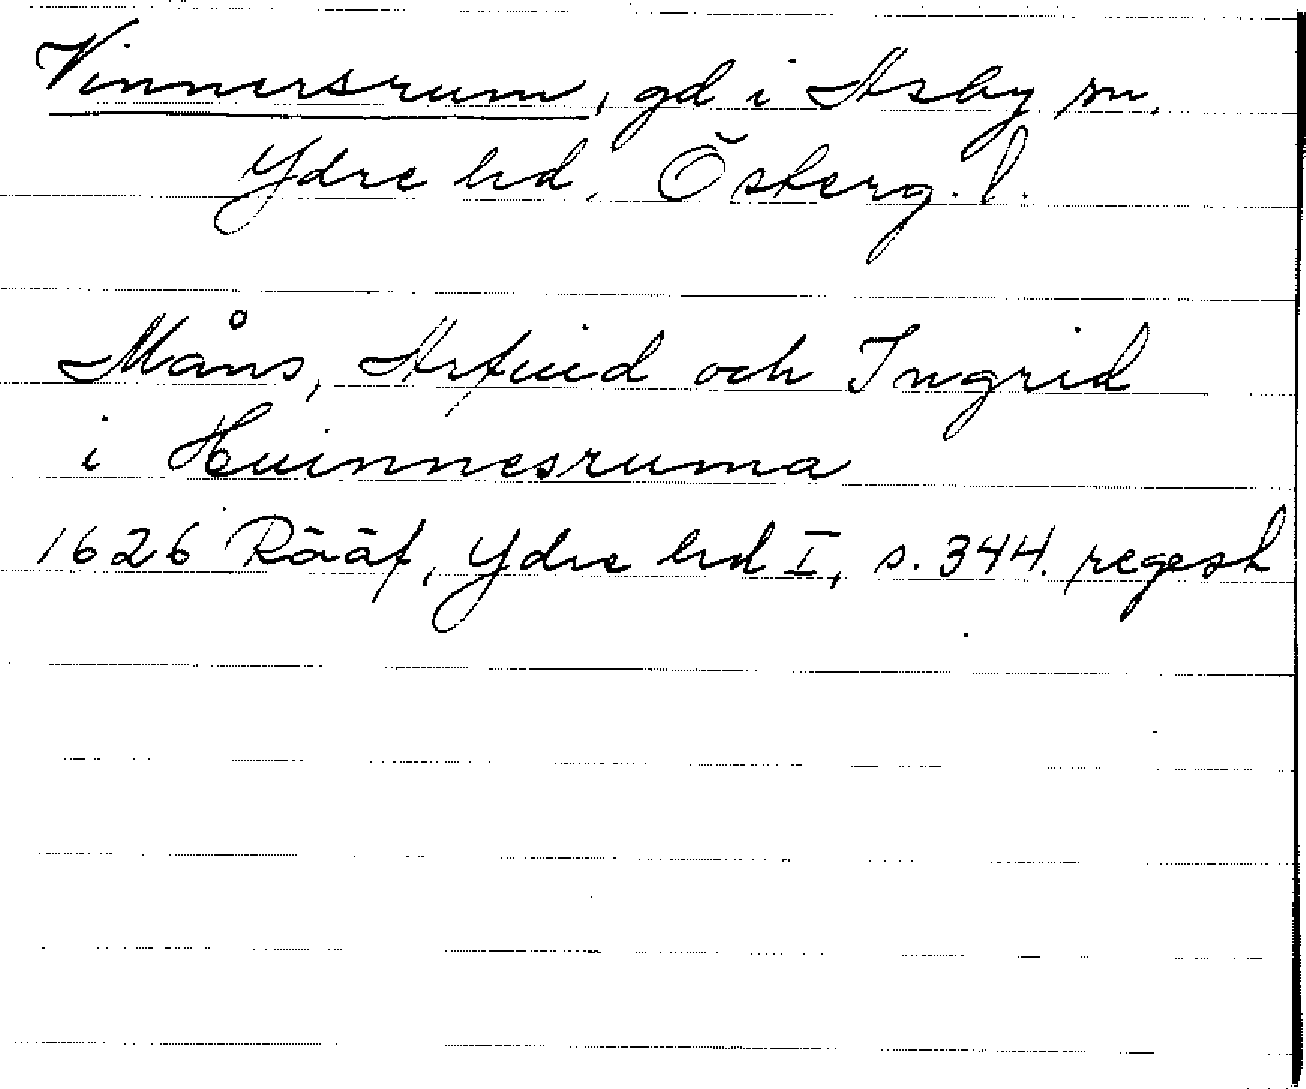 Vinnersrum, gd i Asby sn.
Ydre hd. Österg. l.
Måns, Arfuid och Ingrid
i Huinnesruma
1626 Rääf, Ydre hd I, s. 344. regest